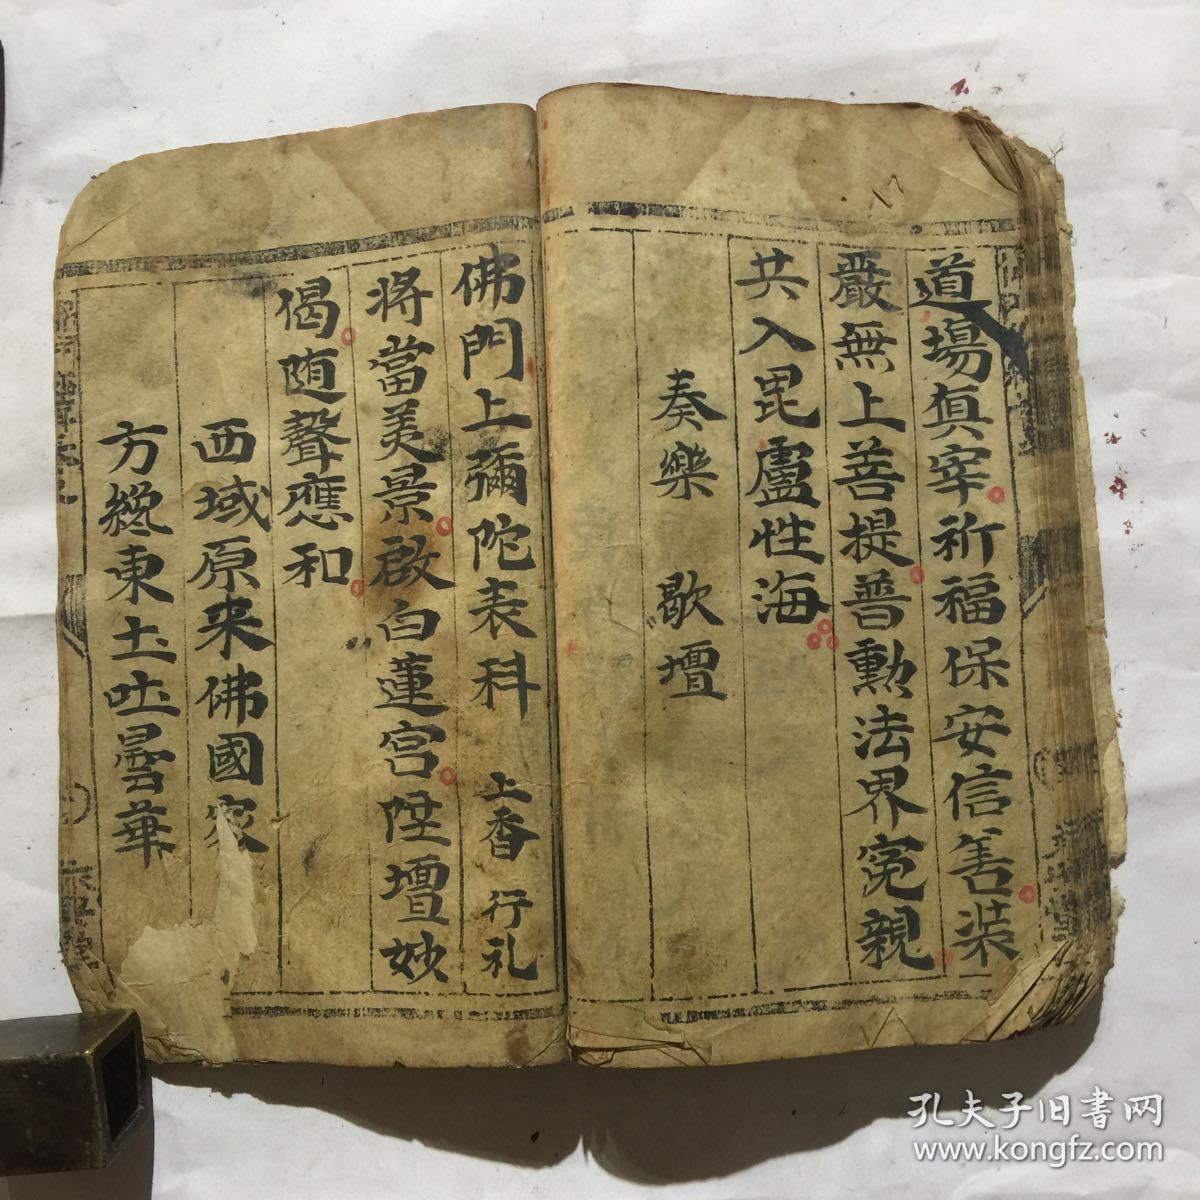 道場真宰祈福保安信善裝
嚴無上菩提普勲法界寃親
共入毘盧性海
奏樂 歇壇
佛門上彌陀表科 上香 行礼
將當美景啟白蓮宮陞壇妙
偈随聲應和
西域原来佛國家
方纔東土吐曇華
孔夫子旧書网
www.kongfz.com